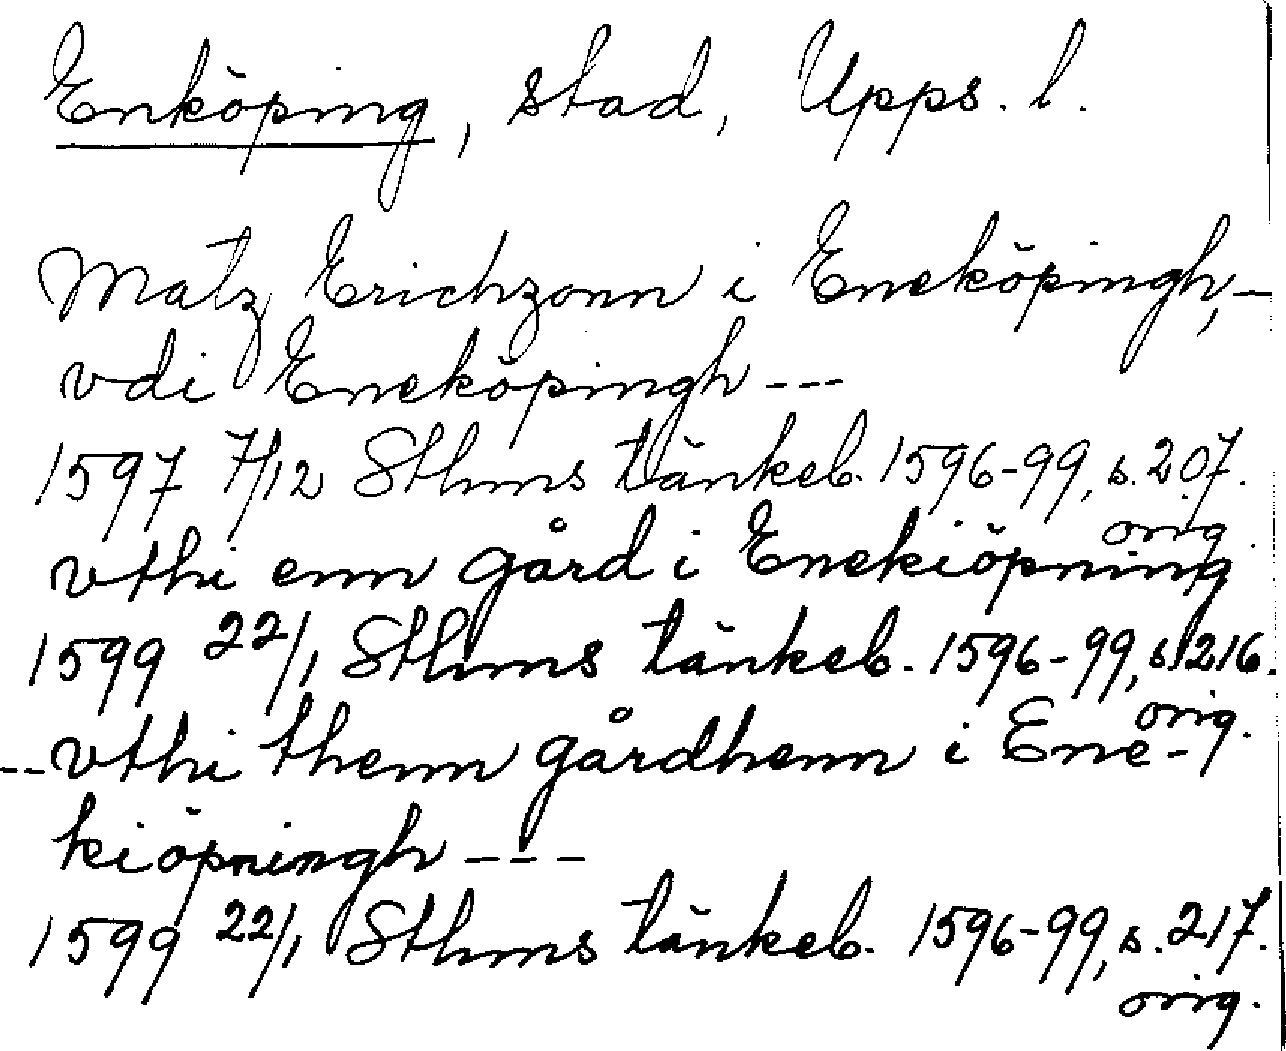 Enköping, stad, Upps. l.
Matz Erichzonn i Eneköpingh, -
vdi Eneköpingh ---
1597 7/12 Sthms tänkeb. 1596-99, s. 207.
orig.
vthi enn gård i Enekiöpning
1599 22/1 Sthms tänkeb. 1596-99, s. 216.
orig.
-- vthi thenn gårdhenn i Ene-
kiöpningh ---
1599 22/1 Sthms tänkeb. 1596-99, s. 217.
orig.